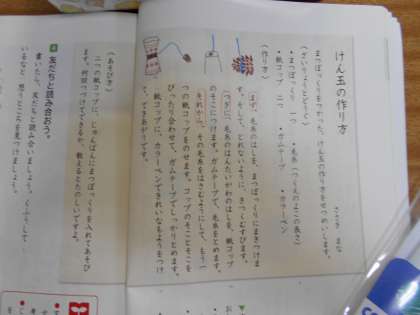 けん玉の作り方
ささき まな
まつぼっくりをつかった、けん玉の作り方をせつめいします。
〈ざいりょうとどうぐ〉
・まつぼっくり 一つ ・毛糸(つくえのよこの長さ)
・紙コップ 二つ ・ガムテープ ・カラーペン
〈作り方〉
まず、毛糸のはしを、まつぼっくりにまきつけま
す。そして、とれないように、きつくむすびます。
つぎに、毛糸のはんたいがわのはしを、紙コップ
のそこにつけます。ガムテープで、毛糸をとめます。
それから、その毛糸をはさむようにして、もう一
つの紙コップをのせます。コップのそことそこを
ぴったり合わせて、ガムテープでしっかりとめます。
紙コップに、カラーペンできれいなもようをつけ
て、できあがりです。
〈あそびかた〉
二つの紙コップに、じゅんばんにまつぼっくりを入れてあそび
ます。何回つづけてできるか、数えるとたのしいですよ。
友だちと読み合おう。
書いたら、友だちと読み合いましょう。くふうして
いるなと思うところを見つけましょう。